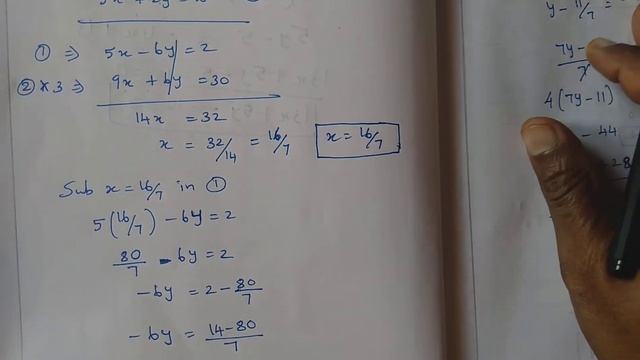 ① ⇒ 5x - 6y = 2
② x 3 ⇒ 9x + 6y = 30
14x = 32
x = 32/14 = 16/7 x = 16/7
Sub x = 16/7 in ①
5(16/7) - 6y = 2
80/7 - 6y = 2
-6y = 2 - 80/7
-6y = 14-80/7
y - 11/7 =
7y -
4(7y-11)
- 44